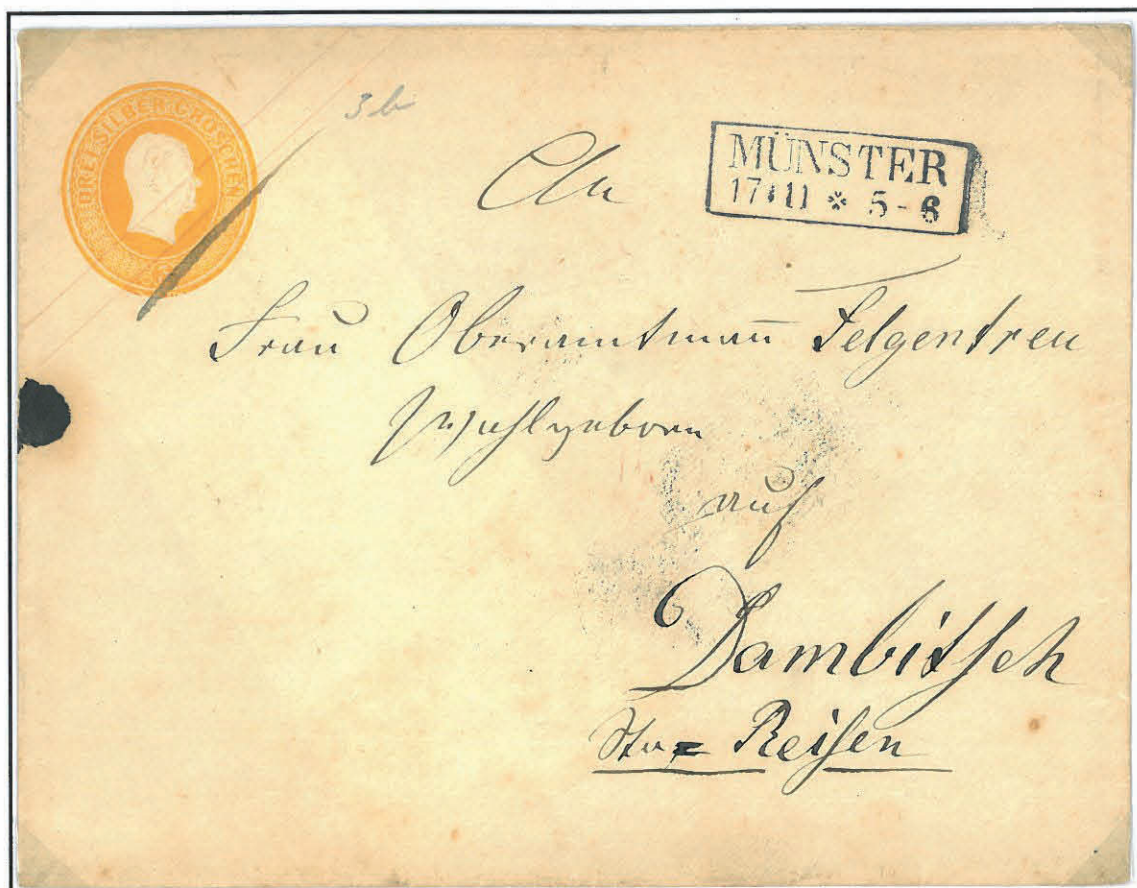 DREI SILBER GROSCHEN
3b
An
MÜNSTER
17 11 * 5-6
Frau Oberamtmañ Felgentreu
Wohlgeboren
auf
Dambitsch
Reisen